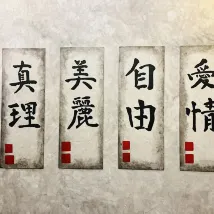 真理
美麗
自由
愛情